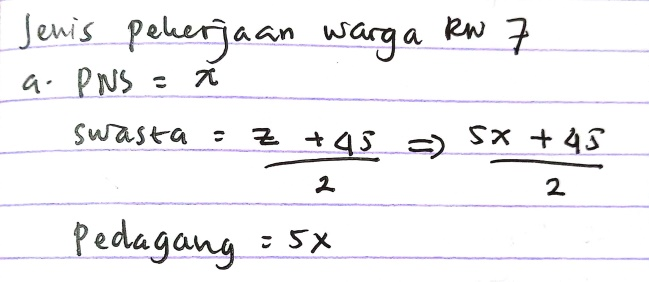 Jenis pekerjaan warga RW 7
a. PNS = x
swasta = z + 45 / 2 ⇒ 5x + 45 / 2
Pedagang = 5x